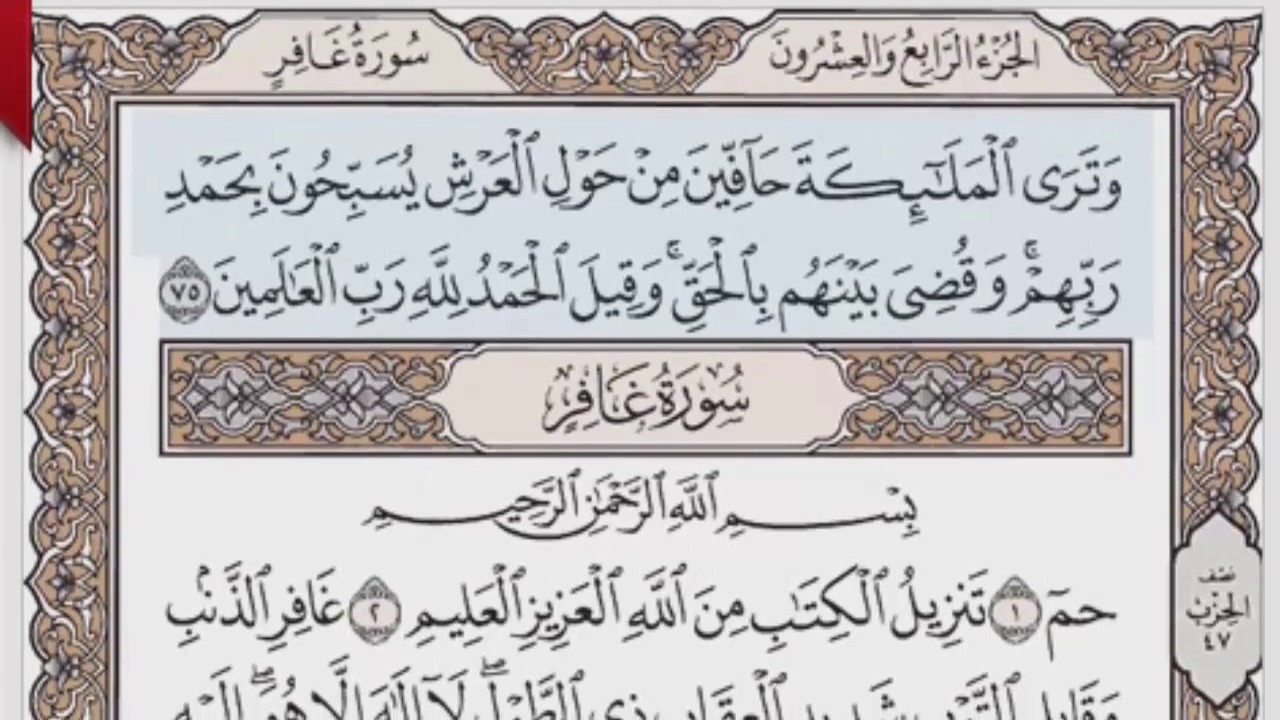 الجُزْءُ الرَّابِعُ وَالعِشْرُونَ
سُورَةُ غَافِرٍ
وَتَرَى ٱلْمَلَـٰٓئِكَةَ حَآفِّينَ مِنْ حَوْلِ ٱلْعَرْشِ يُسَبِّحُونَ بِحَمْدِ
رَبِّهِمْ ۖ وَقُضِىَ بَيْنَهُم بِٱلْحَقِّ ۚ وَقِيلَ ٱلْحَمْدُ لِلَّهِ رَبِّ ٱلْعَـٰلَمِينَ ٧٥
سُورَةُ غَافِرٍ
بِسْمِ ٱللَّهِ ٱلرَّحْمَـٰنِ ٱلرَّحِيمِ
حمٓ ١ تَنزِيلُ ٱلْكِتَـٰبِ مِنَ ٱللَّهِ ٱلْعَزِيزِ ٱلْعَلِيمِ ٢ غَافِرِ ٱلذَّنۢبِ
وَقَابِلِ ٱلتَّوْبِ شَدِيدِ ٱلْعِقَابِ ذِى ٱلطَّوْلِ ۖ لَآ إِلَـٰهَ إِلَّا هُوَ ۖ إِلَيْهِ
نصف
الحِزْبِ
٤٧